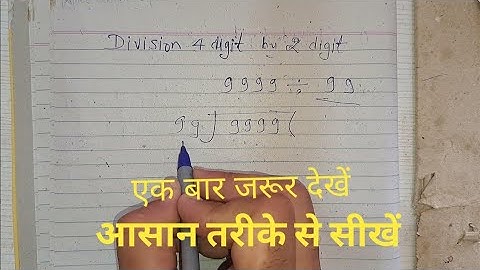 Division 4 digit by 2 digit
9999 ÷ 99
99)9999(
एक बार जरूर देखें
आसान तरीके से सीखें